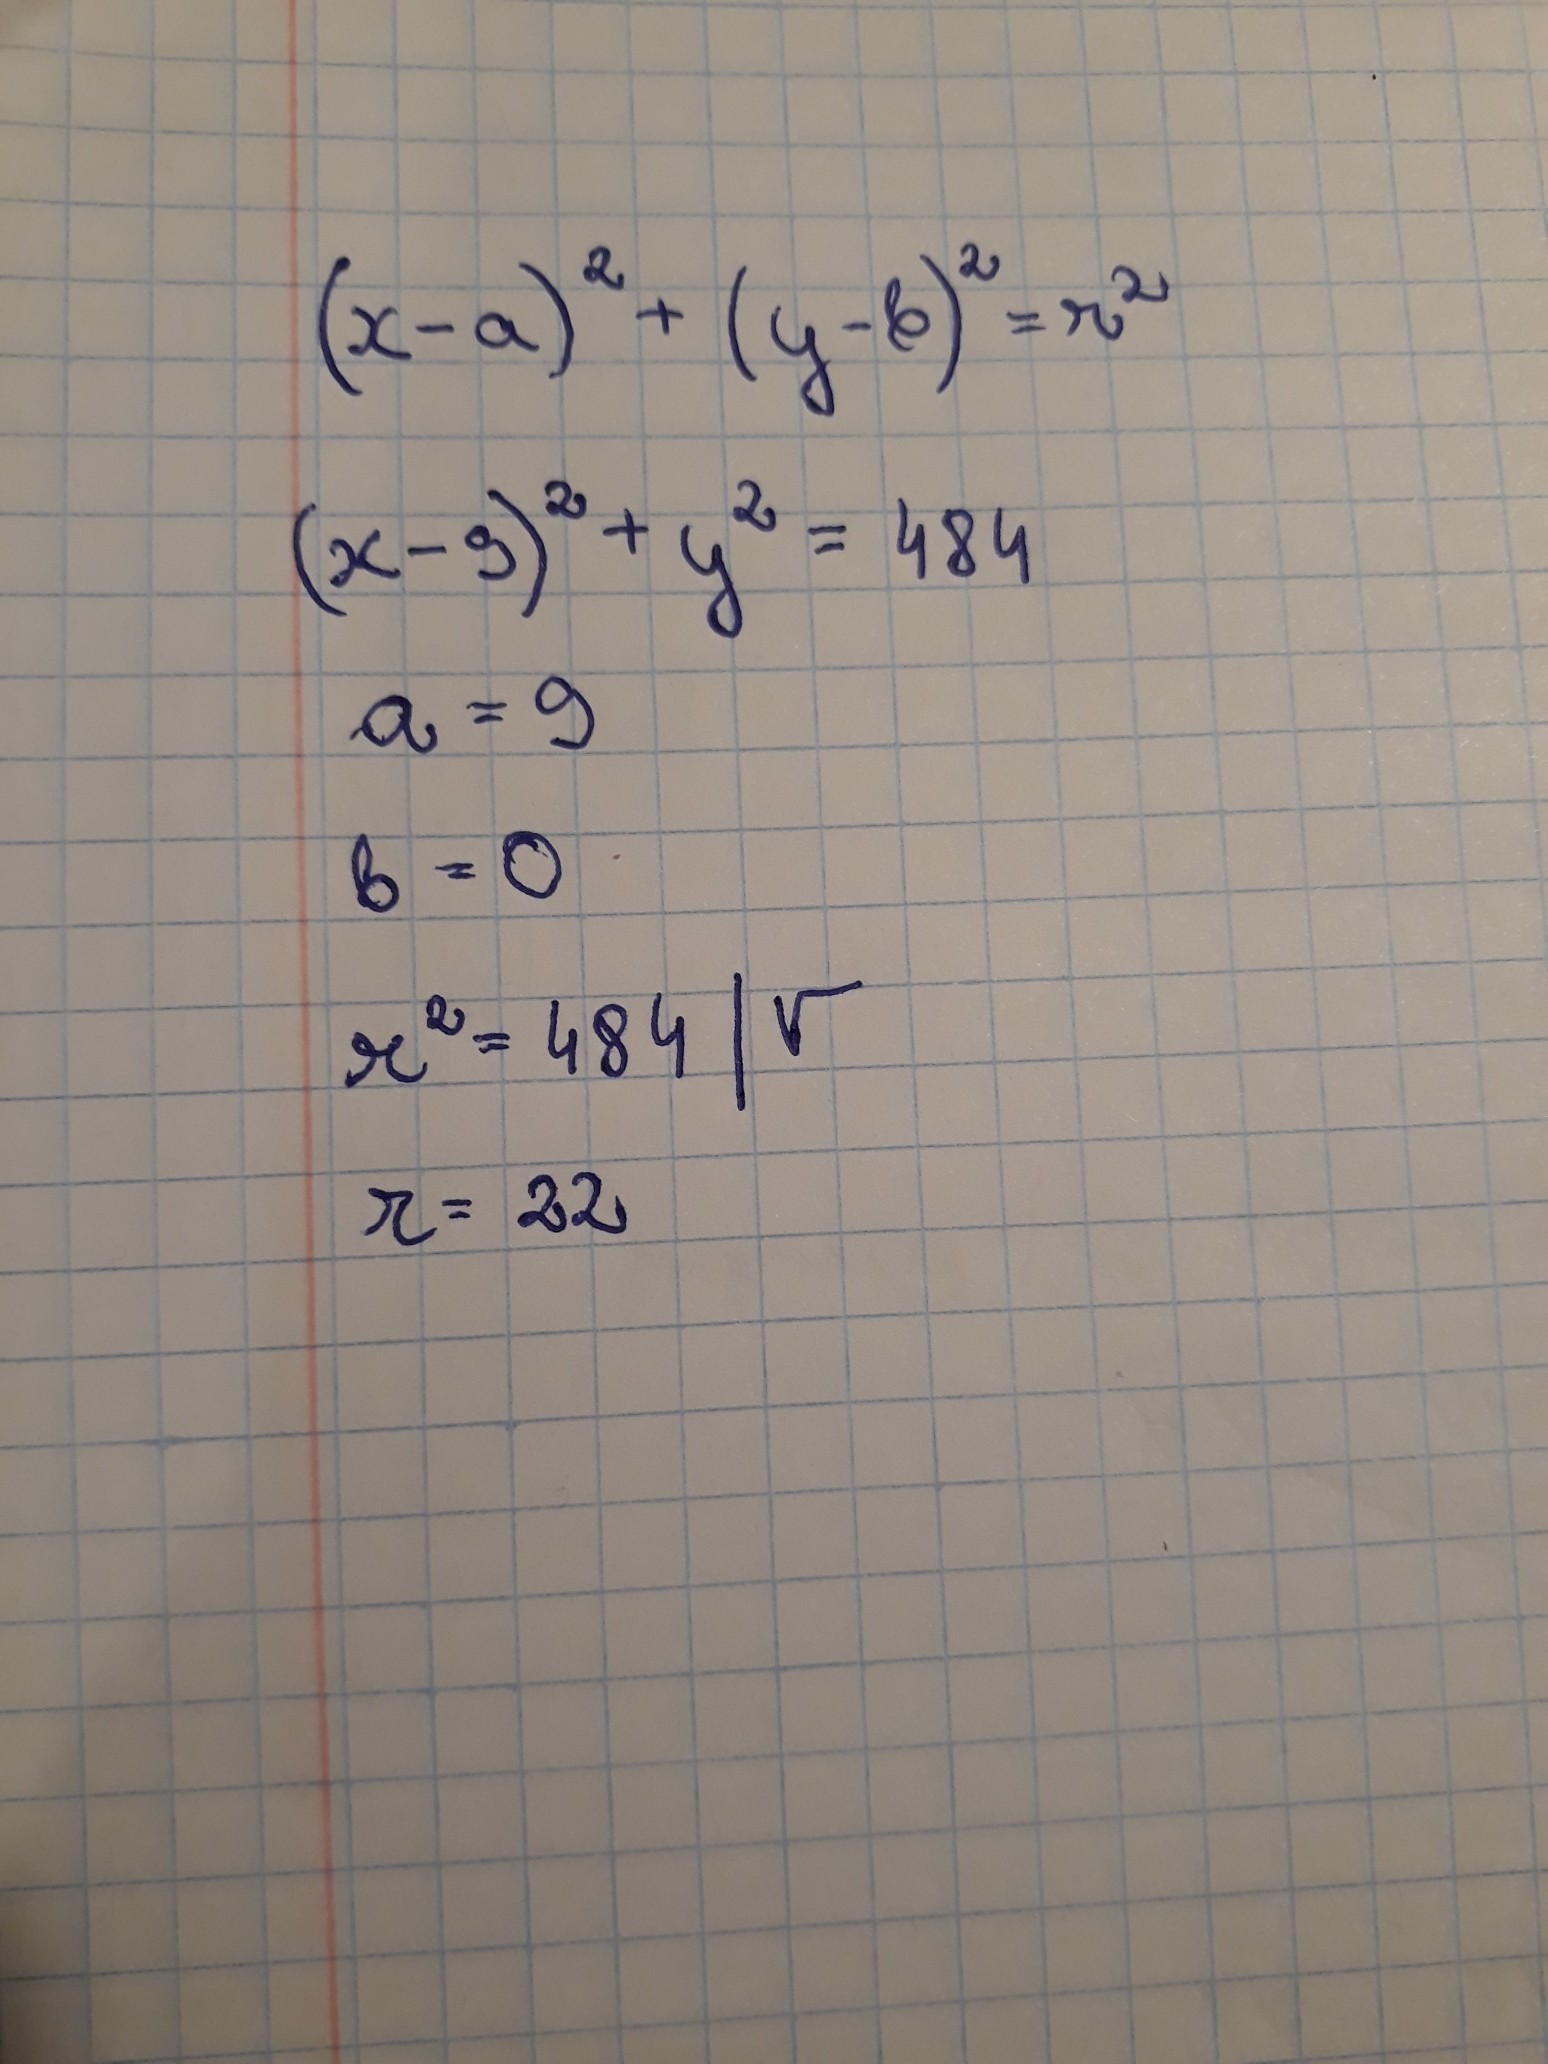 (x-a)² + (y-b)² = r²
(x-9)² + y² = 484
a = 9
b = 0
r² = 484 | √
r = 22